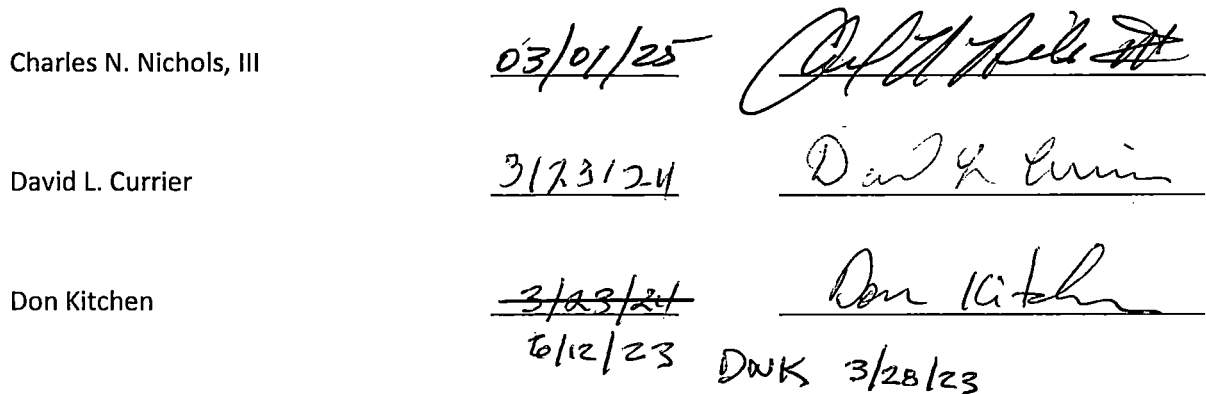 Charles N. Nichols, III 03/01/25
David L. Currier 3/23/24 David L Currier
Don Kitchen 3/23/24 Don Kitchen
6/12/23 DWK 3/28/23